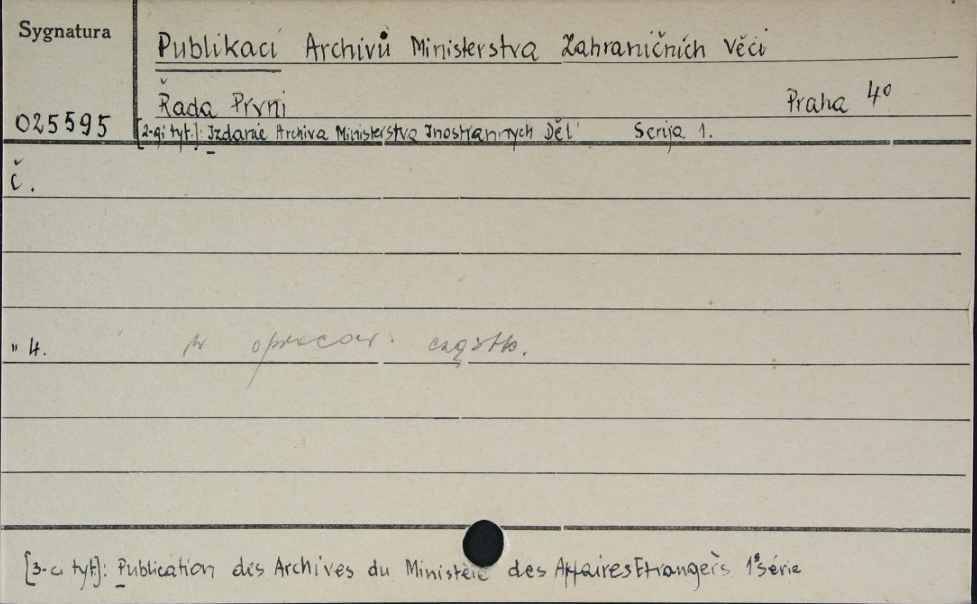 Sygnatura
Publikací Archivů Ministerstva Zahraničních Věcí
Řada Prvni Praha 4°
025595
[2-gi tyt.]: Izdanie Archiva Ministerstva Inostrannych Děl' Serija 1.
č.
" 4. opracow. cząstk.
[3-ci tyt]: Publication des Archives du Ministère des Affaires Etrangers 1e série